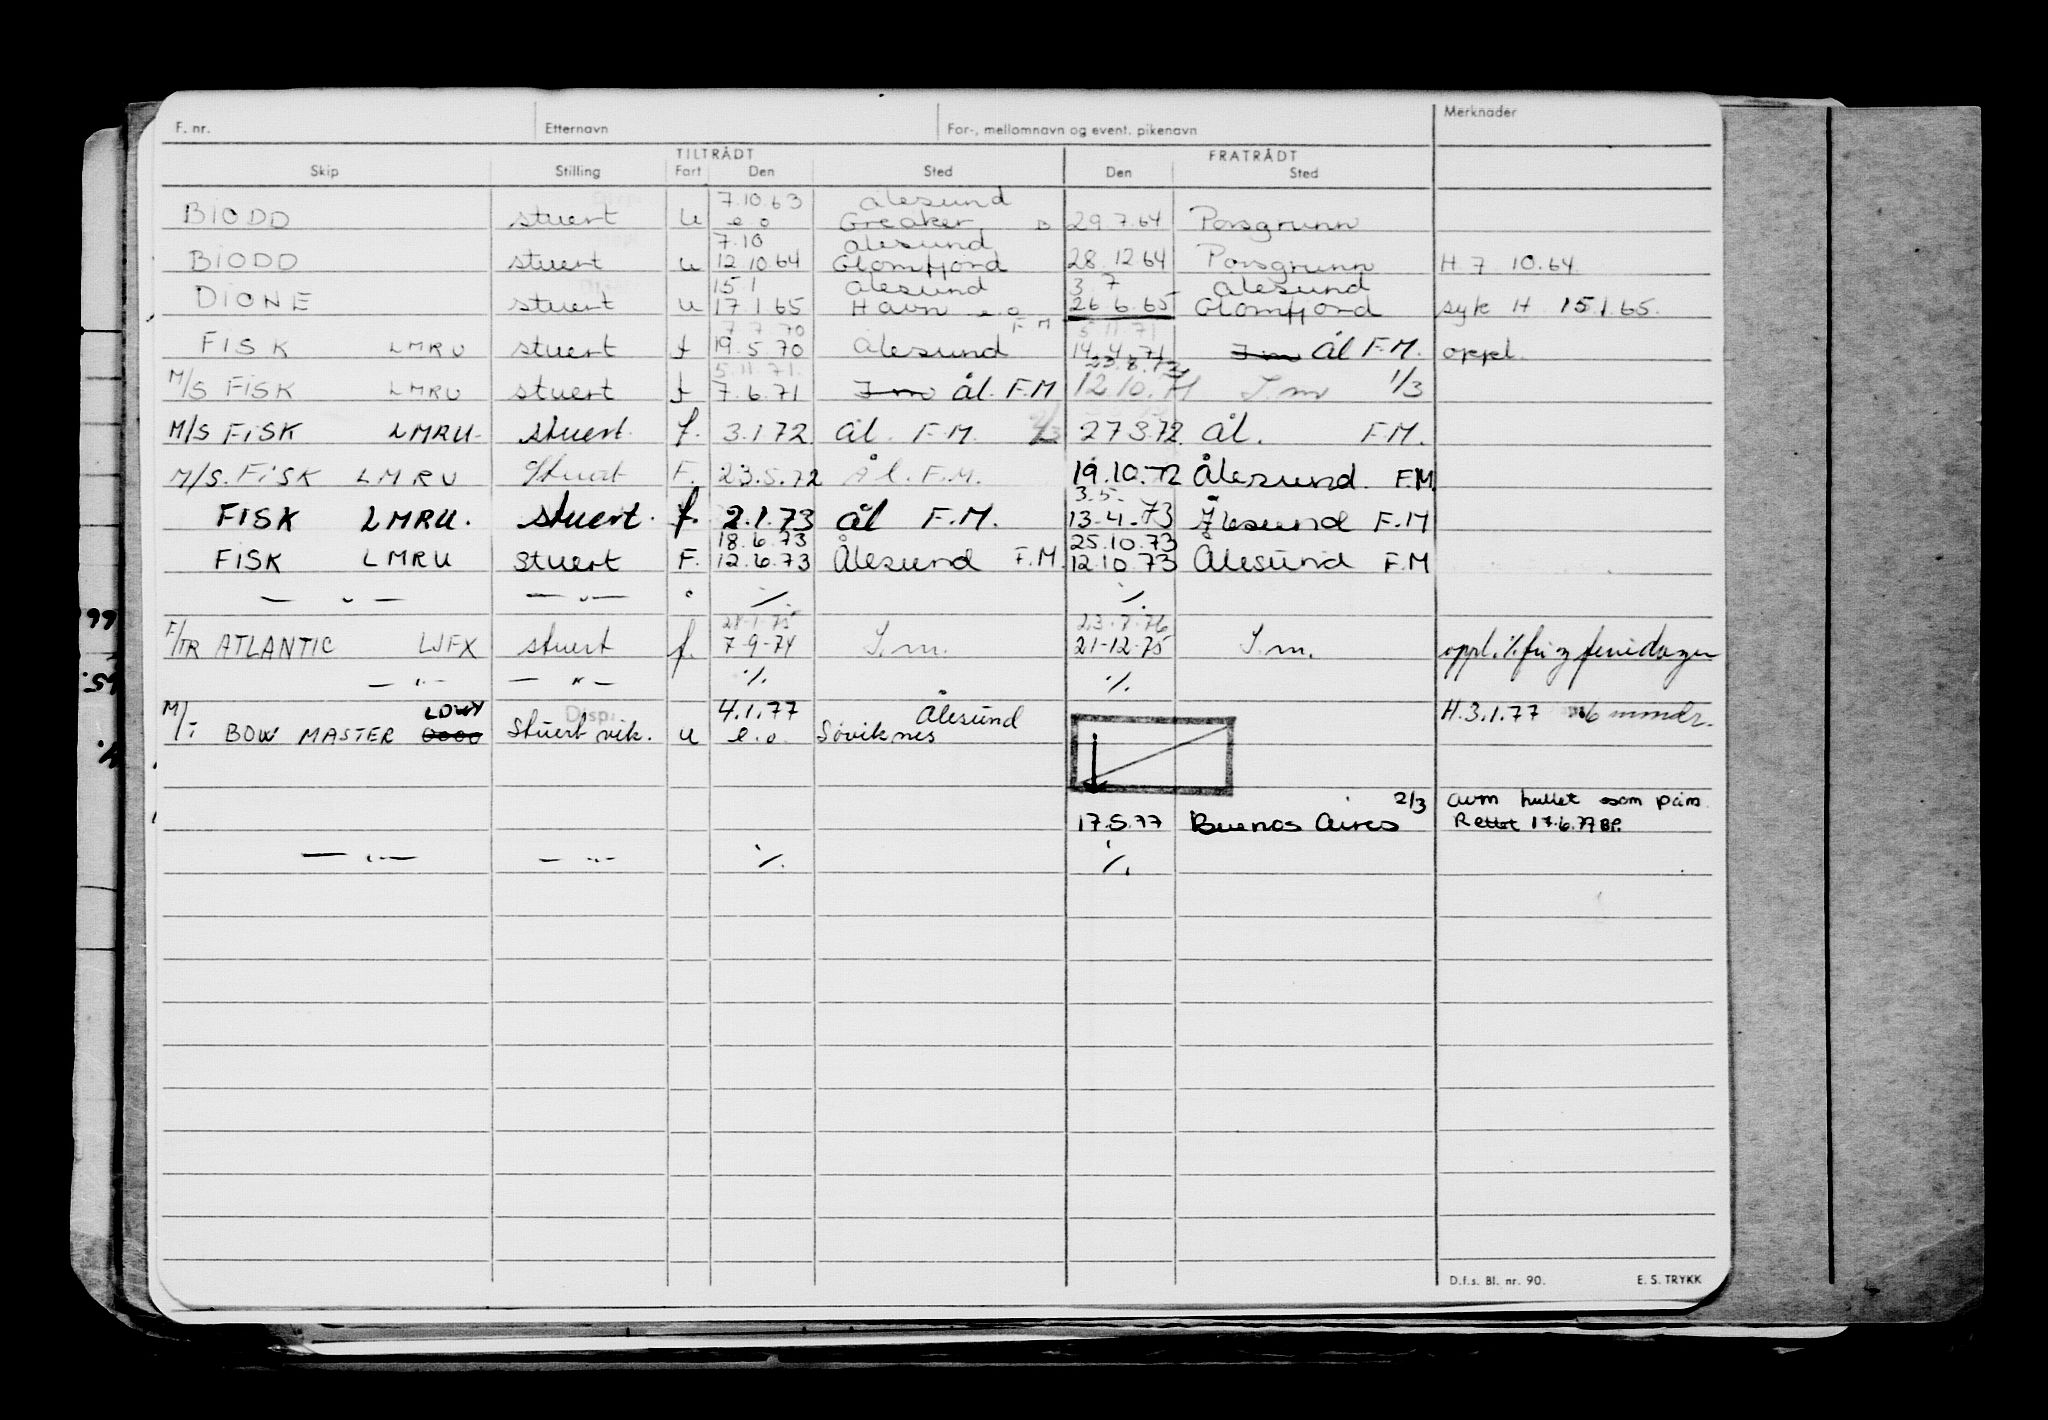 F. nr. Etternavn For-, mellomnavn og event. pikenavn Merknader
TILTRÅDT FRATRÅDT
Skip Stilling Fart Den Sted Den Sted
7.10.63 Ålesund
BIODD stuert u e.o Greaker B 29.7.64 Porsgrunn
7.10 Ålesund
BIODD stuert u 12.10.64 Glomfjord 28.12.64 Porsgrunn H. 7.10.64.
15.1 Ålesund 3.7 Ålesund
DIONE stuert u 17.1.65 Havn e.o 26.6.65 Glomfjord syk H 15.1.65.
7.7.70 F.M 5.11.71
FISK LMRU stuert f 19.5.70 Ålesund 14.4.71 I m Ål F.M. oppl.
5.11.71.
M/S FISK LMRU stuert f 7.6.71 I m Ål. F.M 12.10.71 I.m 1/3
M/S FISK LMRU. stuert. f. 3.1.72. Ål. F.M. 27.3.72. Ål. F.M.
M/S. FISK LMRU Stuert F. 23.5.72 Ål. F.M. 19.10.72 Ålesund. F.M.
3.5.
FISK LMRU. stuert. f. 2.1.73 Ål F.M. 13.4.73 Ålesund F.M
18.6.73 25.10.73
FISK LMRU stuert F. 12.6.73 Ålesund F.M. 12.10.73 Ålesund F.M
— " — — " — ./. ./.
28.1.75 23.7.76
F/TR ATLANTIC LJFX stuert f. 7-9-74 I.m. 21-12.75 I.m. oppl. ./. fri og feriedager
— " — — " — ./. ./.
M/T LDWY Disp. 4.1.77 Ålesund H.3.1.77 6 mndr.
BOW MASTER OOOO Stuert vik. u e.o. Søviknes
2/3 avm hullet som påm.
17.5.77 Buenos Aires Rettet 17.6.77 BP.
— " — — " — ./. ./.
D.f.s. Bl. nr. 90. E. S. TRYKK